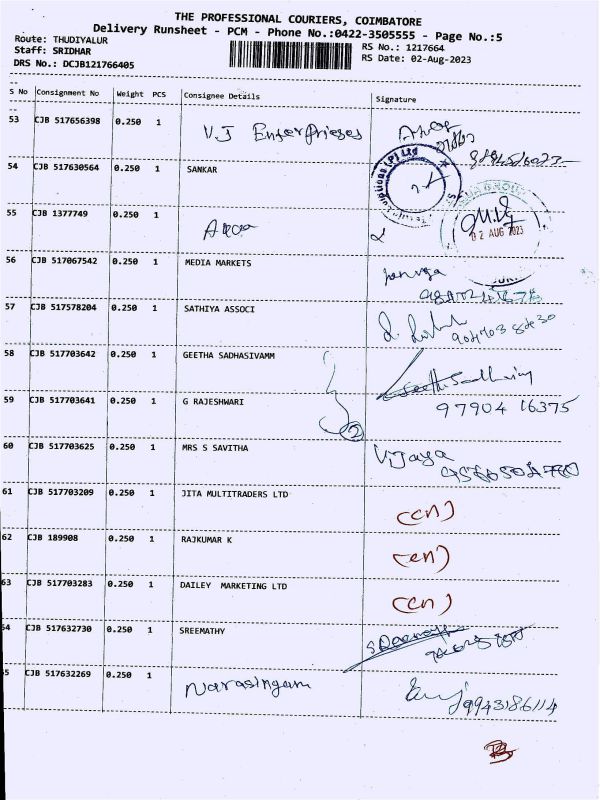 THE PROFESSIONAL COURIERS, COIMBATORE
Delivery Runsheet - PCM - Phone No.:0422-3505555 - Page No.:5
Route: THUDIYALUR
RS No.: 1217664
Staff: SRIDHAR
RS Date: 02-Aug-2023
DRS No.: DCJB121766405
S No Consignment No Weight PCS Consignee Details Signature
53 CJB 517656398 0.250 1 V.J Enterprises
54 CJB 517630564 0.250 1 SANKAR
55 CJB 1377749 0.250 1
02 AUG 2023
56 CJB 517067542 0.250 1 MEDIA MARKETS
57 CJB 517578204 0.250 1 SATHIYA ASSOCI
58 CJB 517703642 0.250 1 GEETHA SADHASIVAMM
59 CJB 517703641 0.250 1 G RAJESHWARI 97904 16375
2
60 CJB 517703625 0.250 1 MRS S SAVITHA Vijaya
61 CJB 517703209 0.250 1 JITA MULTITRADERS LTD (cn)
62 CJB 189908 0.250 1 RAJKUMAR K (cn)
63 CJB 517703283 0.250 1 DAILEY MARKETING LTD (cn)
64 CJB 517632730 0.250 1 SREEMATHY
65 CJB 517632269 0.250 1 Narasingam 9943186114